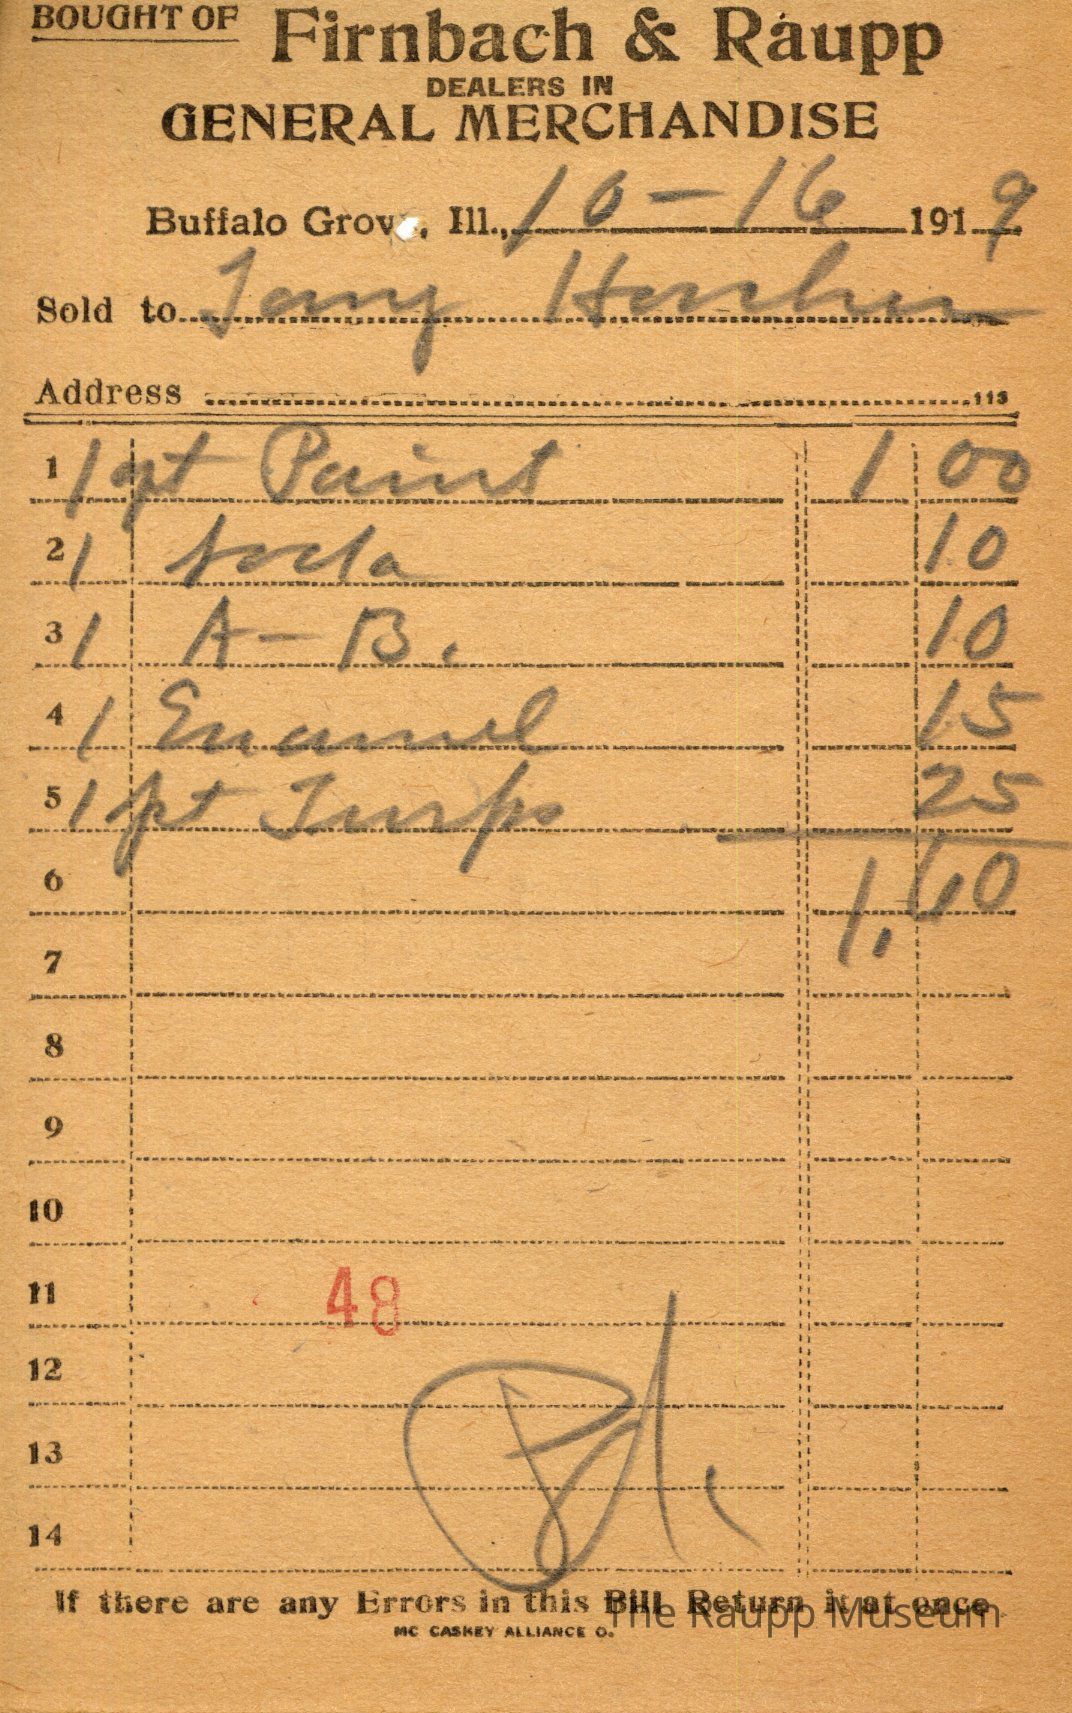 BOUGHT OF Firnbach & Raupp
DEALERS IN
GENERAL MERCHANDISE
Buffalo Grove, Ill., 10-16 1919
Sold to
Address 113
1 1 qt Paint 1 00
2 1 soda 10
3 1 A-B. 10
4 1 Enamel 15
5 1 pt Turps 25
6 1.60
7
8
9
10
11 48
12
13
14
If there are any Errors in this Bill Return it at once
The Raupp Museum
MC CASKEY ALLIANCE O.